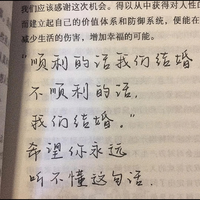 我们应该感谢这次机会。得以从中获得对人性的
而建立起自己的价值体系和防御系统，便能在
减少生活的伤害，增加幸福的可能。
"顺利的话我们结婚
不顺利的话，
我们结婚。"
希望你永远
听不懂这句话.